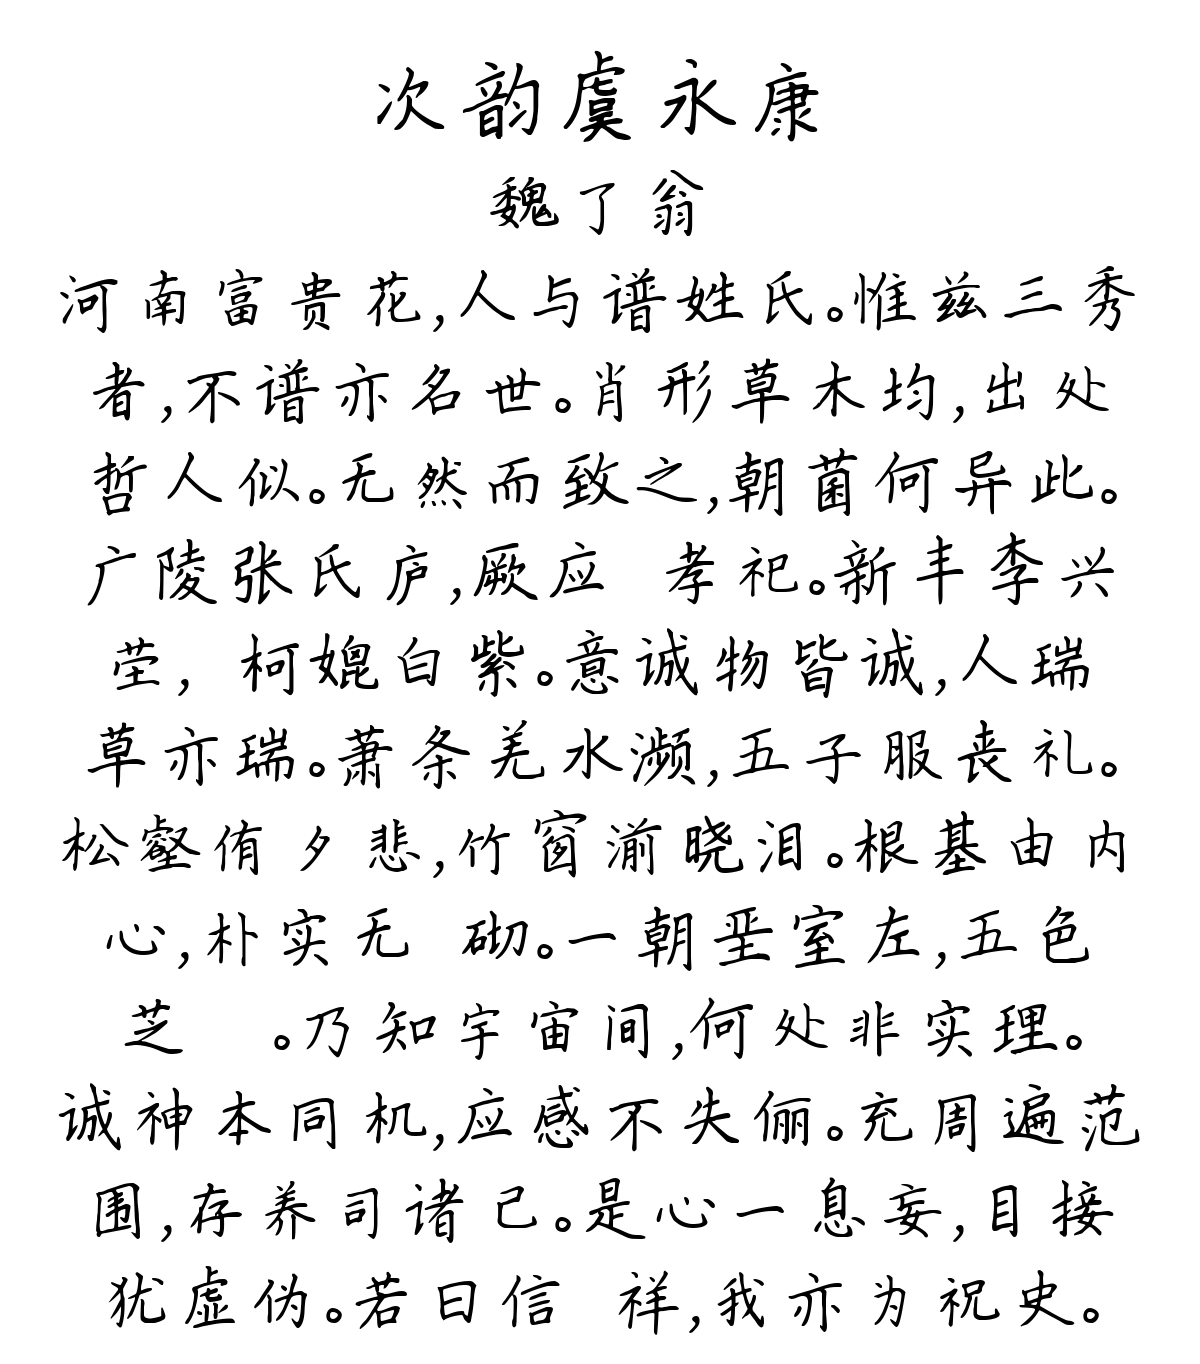 次韵虞永康
魏了翁
河南富贵花,人与谱姓氏。惟兹三秀
者,不谱亦名世。肖形草木均,出处
哲人似。无然而致之,朝菌何异此。
广陵张氏庐,厥应 孝祀。新丰李兴
茔, 柯媲白紫。意诚物皆诚,人瑞
草亦瑞。萧条羌水濒,五子服丧礼。
松壑侑夕悲,竹窗湔晓泪。根基由内
心,朴实无 砌。一朝垩室左,五色
芝 。乃知宇宙间,何处非实理。
诚神本同机,应感不失俪。充周遍范
围,存养司诸己。是心一息妄,目接
犹虚伪。若曰信 祥,我亦为祝史。